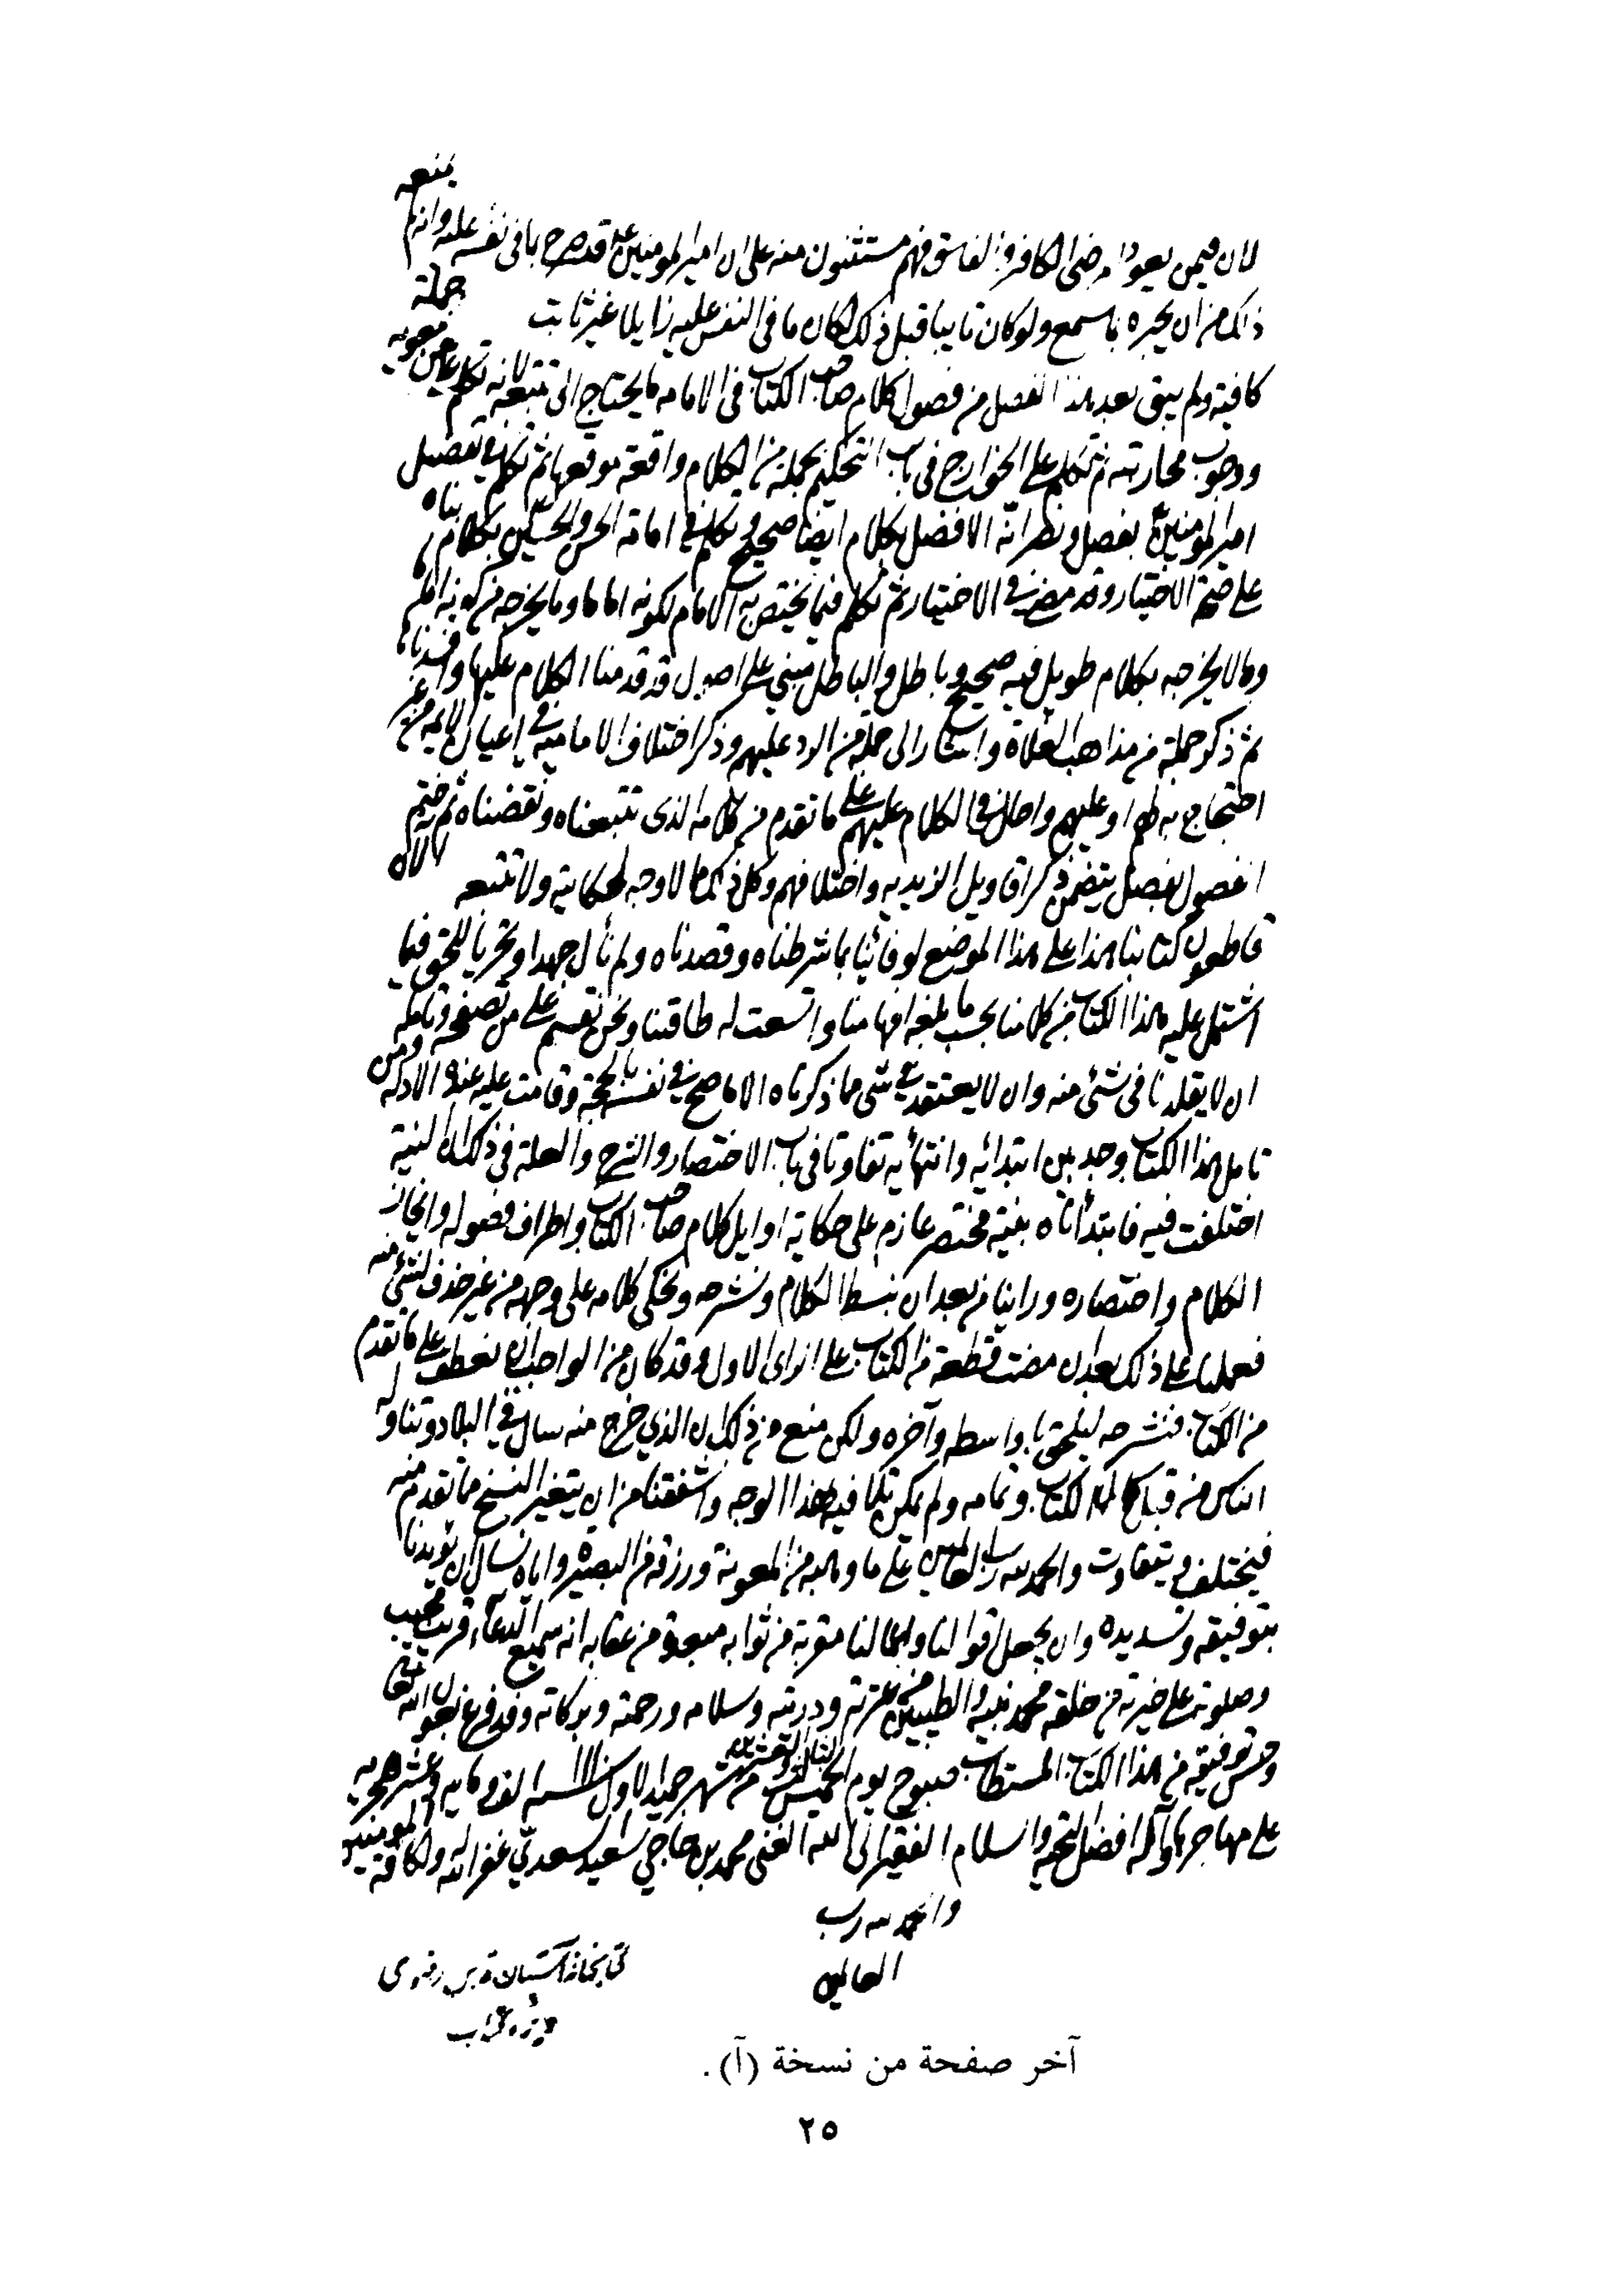 لان فيمن يعود مرضى الكافر والفاسق فهم مستثنون منه على ان امير المومنين ع قد صرح بما فى نفسه عليه وانه لم يمنعه
ذلك من ان يجيره باسمع ولو كان تايبا قبل ذلك لكان ما فى النفس عليه زايلا غير ثابت جملة
كافية ولم يبق بعد هذا الفصل من فصول كلام صاحب الكتاب فى الامامه ما يحتاج الى تتبعه لانه تكلم على معويه
ووجوب محاربته ثم تكلم على الخوارج فى باب التحكيم بجملة من الكلام واقعة موقعها ثم تكلم فى تفضيل
امير المومنين ع بفصل ونظر انه الافضل بكلام ايضا صحيح وتكلم فى امامة الحسن والحسين بكلام بناه
على صحة الاختيار وقد مضى فى الاختيار ثم تكلم فيما يختص به الامام لكونه اماما وما يخرجه من كونه اماما
وما لا يخرجه بكلام طويل فيه صحيح وباطل والباطل مبنى على اصول قد قدمنا الكلام عليها وافسدناها
ثم ذكر جملة من مذاهب الغلاة واشار الى جملة من الرد عليهم وذكر اختلاف الامامية فى اعيان الائمه من غير
احتجاج به لهم او عليهم واحال فى الكلام عليهم على ما تقدم من كلامه الذى تتبعناه ونقضناه ثم ختم
الفصول بفصل يتضمن ذكر اقاويل الزيديه واختلافهم وكل ذلك مما لا وجه لحكايته ولا تتبعه
قاطعون كتابنا هذا على هذا الموضع لوفائنا بما شرطناه وقصدناه ولم نأل جهدا وتحريا للحق فيما
اشتمل عليه هذا الكتاب من كلامنا بحسب ما بلغه افهامنا واتسعت له طاقتنا ونحن نقسم على من تصفحه وتامله
ان لا يقلدنا فى شئ منه وان لا يعتقد فى شى مما ذكرناه الا ما صح فى نفسه بالحجة وقامت عليه عنده الادلة ومن
تامل هذا الكتاب وجد بين ابتدائه وانتهائه تفاوتا فى باب الاختصار والشرح والعلة فى ذلك ان النية
اختلفت فيه فابتدأناه بنية مختصر عازم على حكاية اوايل كلام صاحب الكتاب واطراف فصوله وايجاز
الكلام واختصاره وراينا من بعد ان نبسط الكلام ونشرحه ونحكى كلامه على وجهه من غير حذف لشئ منه
فعملنا على ذلك بعد ان مضت قطعة من الكتاب على الراى الاول وقد كان من الواجب ان نعطف على ما تقدم
من الكتاب فنشرحه ليلحق باواسطه وآخره ولكن منع من ذلك ان الذي خرج منه سار فى البلاد وتناوله
الناس من قبل كمال الكتاب وتمامه ولم يمكن تلافيه لهذا الوجه واشفقنا من ان يتغير النسخ مما تقدم منه
فيختلف ويتفاوت والحمد لله رب العالمين على ما وهبه من المعونة ورزقه من البصيرة واياه نسال ان يؤيدنا
بتوفيقه وتسديده وان يجعل اقوالنا وافعالنا مقربة من ثوابه مبعدة من عقابه انه سميع الدعاء قريب مجيب
وصلوته على خيرته من خلقه محمد نبيه والطيبين من عترته وذريته وسلامه ورحمة وبركاته وقد فرغ بعون الله تعالى
وحسن توفيقه من هذا الكتاب المستطاب صبوح يوم الخميس من شهر جميد الاول سنة الف ومايه وعشر هجريه
على مهاجرها وآله افضل التحية والسلام الفقير الى الله الغنى محمد بن حاجي سعيد سعدي غفر الله له ولكافة المومنين
والحمد لله رب
العالمين
كتابخانه آستان قدس رضوى
آخر صفحة من نسخة (آ).
٢٥